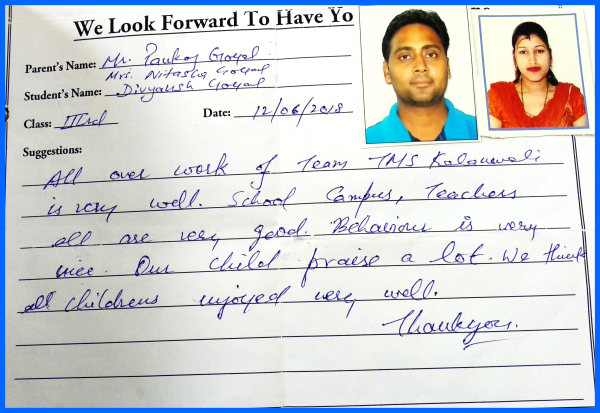 We Look Forward To Have Yo
Parent's Name: Mr. Pankaj Goyal
Mrs. Nitasha Goyal
Student's Name: Divyansh Goyal
Class: IIIrd Date: 12/06/2018
Suggestions:
All over work of Team TMS Kalanwali
is very well. School Campus, Teachers
all are very good. Behaviour is very
nice. Our child praise a lot. We think
all childrens enjoyed very well.
Thankyou.